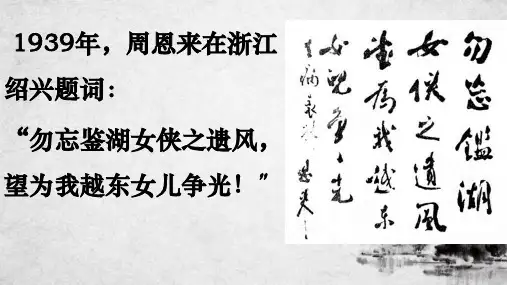 1939年，周恩来在浙江
绍兴题词：
“勿忘鉴湖女侠之遗风，
望为我越东女儿争光！"
勿忘鑑湖
女侠之遺風
望為我越东
女兒争光